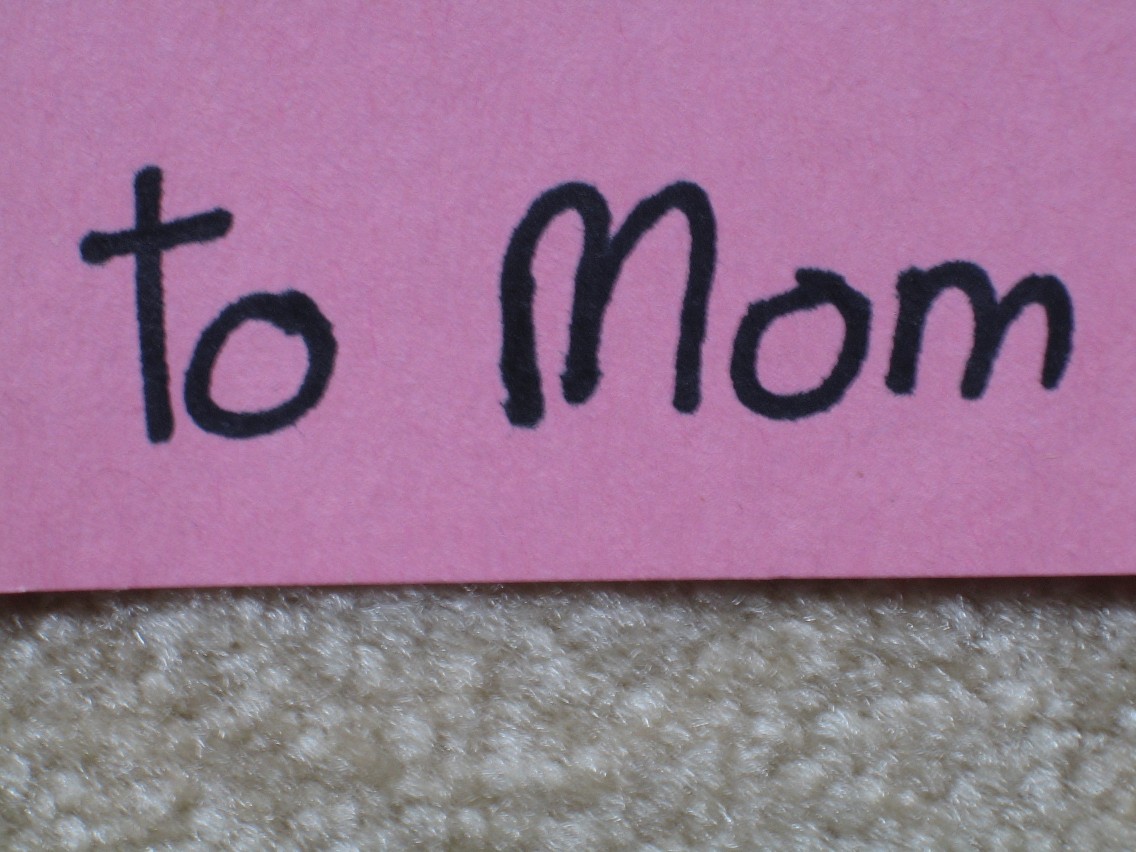 to Mom